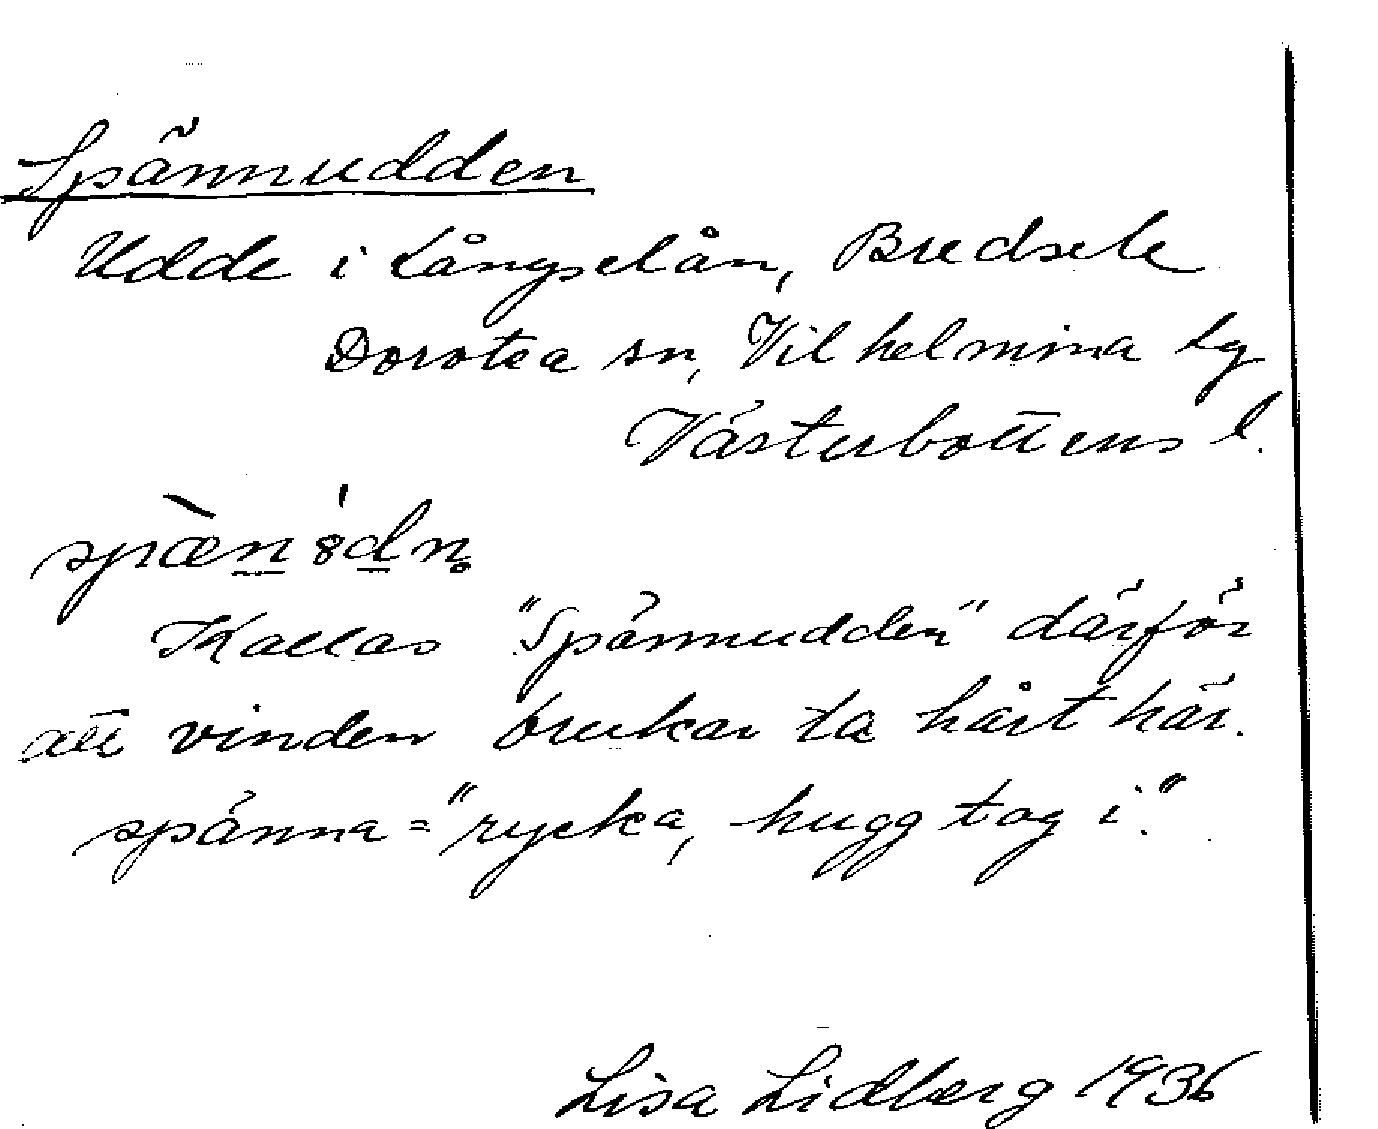 Spännudden
Udde i Långselån, Bredsele
Dorotea sn, Vilhelmina lg
Västerbottens l.
spæ̀n 8́dn̥
Kallas "Spännudden" därför
att vinden brukar ta hårt här.
spänna = "rycka, hugg tag i."
Lisa Lidberg 1936